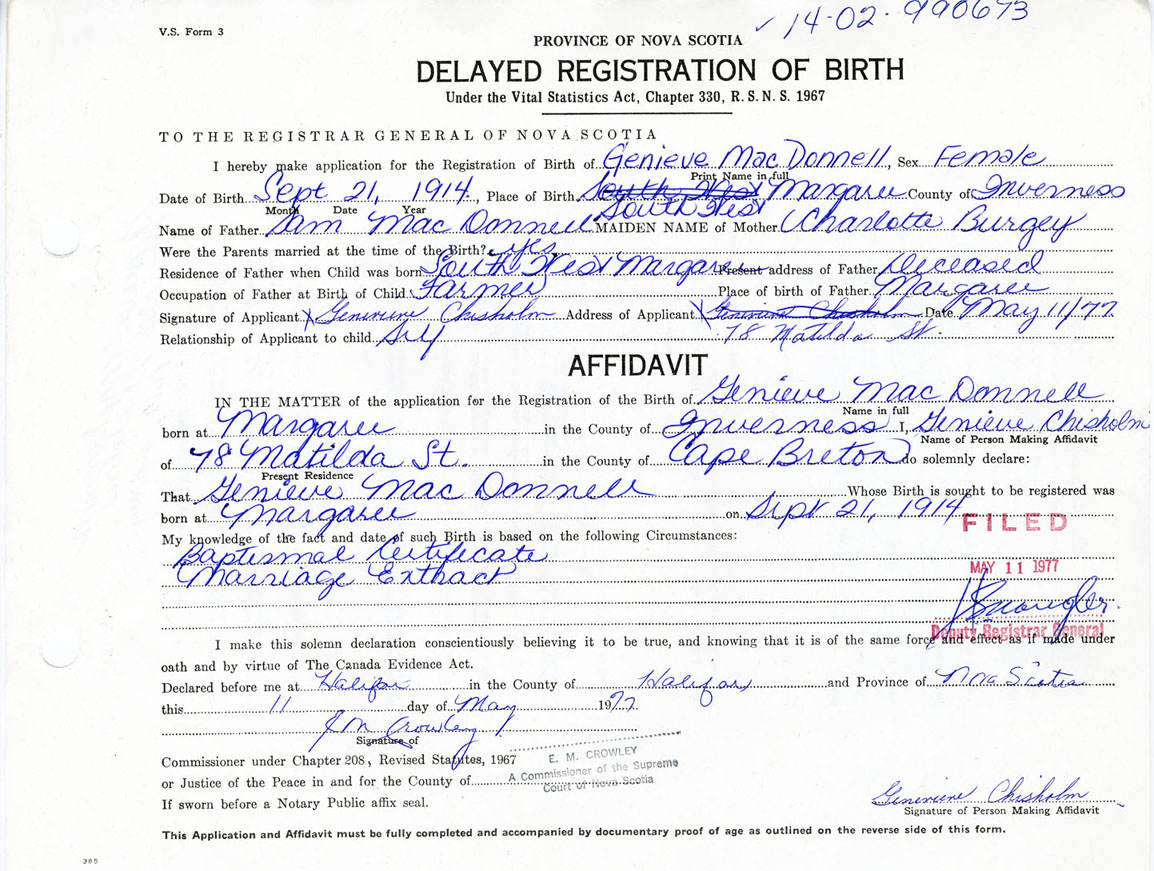 ✓ 14-02-990673
V.S. Form 3
PROVINCE OF NOVA SCOTIA
DELAYED REGISTRATION OF BIRTH
Under the Vital Statistics Act, Chapter 330, R.S.N.S. 1967
TO THE REGISTRAR GENERAL OF NOVA SCOTIA
I hereby make application for the Registration of Birth of Genieve MacDonnell, Sex Female
Print Name in full
Date of Birth Sept 21, 1914, Place of Birth South West Margaree County of Inverness
Month Date Year South West
Name of Father Mac Donnell MAIDEN NAME of Mother Charlotte Burgey
Were the Parents married at the time of the Birth? yes
Residence of Father when Child was born South West Margaree Present address of Father Deceased
Occupation of Father at Birth of Child Farmer Place of birth of Father Margaree
Signature of Applicant X Genevieve Chisholm Address of Applicant X Genevieve Chisholm Date May 11/77
Relationship of Applicant to child Self 78 Matilda St.
AFFIDAVIT
IN THE MATTER of the application for the Registration of the Birth of Genieve Mac Donnell
Name in full
born at Margaree in the County of Inverness I, Genieve Chisholm
Name of Person Making Affidavit
of 78 Matilda St. in the County of Cape Breton do solemnly declare:
Present Residence
That Genieve Mac Donnell Whose Birth is sought to be registered was
born at Margaree on Sept 21, 1914
FILED
My knowledge of the fact and date of such Birth is based on the following Circumstances:
Baptismal Certificate
MAY 11 1977
Marriage Extract
Deputy Registrar General
I make this solemn declaration conscientiously believing it to be true, and knowing that it is of the same force and effect as if made under
oath and by virtue of The Canada Evidence Act.
Declared before me at Halifax in the County of Halifax and Province of Nova Scotia
this 11 day of May 1977.
E M Crowley
Signature of
Commissioner under Chapter 208, Revised Statutes, 1967
E. M. CROWLEY
or Justice of the Peace in and for the County of
A Commissioner of the Supreme
Court of Nova Scotia
If sworn before a Notary Public affix seal.
Genevieve Chisholm
Signature of Person Making Affidavit
This Application and Affidavit must be fully completed and accompanied by documentary proof of age as outlined on the reverse side of this form.
385